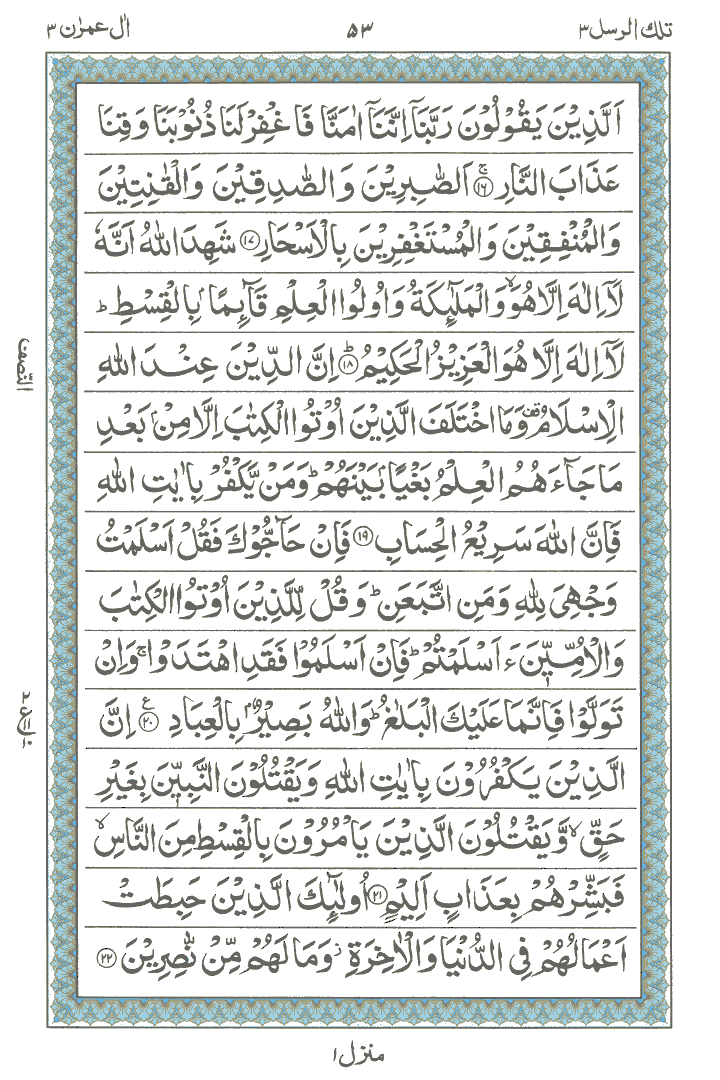 تلك الرسل ٣ ۵۳ ال عمرٰن ٣
اَلَّذِيْنَ يَقُوْلُوْنَ رَبَّنَاۤ اِنَّنَاۤ اٰمَنَّا فَاغْفِرْ لَنَا ذُنُوْبَنَا وَقِنَا
عَذَابَ النَّارِۚ ﴿۱۶﴾ اَلصّٰبِرِيْنَ وَالصّٰدِقِيْنَ وَالْقٰنِتِيْنَ
وَالْمُنْفِقِيْنَ وَالْمُسْتَغْفِرِيْنَ بِالْاَسْحَارِ ﴿۱۷﴾ شَهِدَ اللّٰهُ اَنَّهٗ
لَاۤ اِلٰهَ اِلَّا هُوَۙ وَالْمَلٰٓئِكَةُ وَاُولُوا الْعِلْمِ قَآئِمًاۢ بِالْقِسْطِؕ
لَاۤ اِلٰهَ اِلَّا هُوَ الْعَزِيْزُ الْحَكِيْمُؕ ﴿۱۸﴾ اِنَّ الدِّيْنَ عِنْدَ اللّٰهِ
الْاِسْلَامُ۫ وَمَا اخْتَلَفَ الَّذِيْنَ اُوْتُوا الْكِتٰبَ اِلَّا مِنْۢ بَعْدِ
مَا جَآءَهُمُ الْعِلْمُ بَغْيًاۢ بَيْنَهُمْؕ وَمَنْ يَّكْفُرْ بِاٰيٰتِ اللّٰهِ
فَاِنَّ اللّٰهَ سَرِيْعُ الْحِسَابِ ﴿۱۹﴾ فَاِنْ حَآجُّوْكَ فَقُلْ اَسْلَمْتُ
وَجْهِيَ لِلّٰهِ وَمَنِ اتَّبَعَنِؕ وَقُلْ لِّلَّذِيْنَ اُوْتُوا الْكِتٰبَ
وَالْاُمِّيّٖنَ ءَاَسْلَمْتُمْؕ فَاِنْ اَسْلَمُوْا فَقَدِ اهْتَدَوْاۚ وَاِنْ
تَوَلَّوْا فَاِنَّمَا عَلَيْكَ الْبَلٰغُؕ وَاللّٰهُ بَصِيْرٌۢ بِالْعِبَادِ ﴿۲۰﴾ اِنَّ
الَّذِيْنَ يَكْفُرُوْنَ بِاٰيٰتِ اللّٰهِ وَيَقْتُلُوْنَ النَّبِيّٖنَ بِغَيْرِ
حَقٍّۙ وَّيَقْتُلُوْنَ الَّذِيْنَ يَاْمُرُوْنَ بِالْقِسْطِ مِنَ النَّاسِۙ
فَبَشِّرْهُمْ بِعَذَابٍ اَلِيْمٍ ﴿۲۱﴾ اُولٰٓئِكَ الَّذِيْنَ حَبِطَتْ
اَعْمَالُهُمْ فِي الدُّنْيَا وَالْاٰخِرَةِؗ وَمَا لَهُمْ مِّنْ نّٰصِرِيْنَ ﴿۲۲﴾
النّصف
منزل ۱